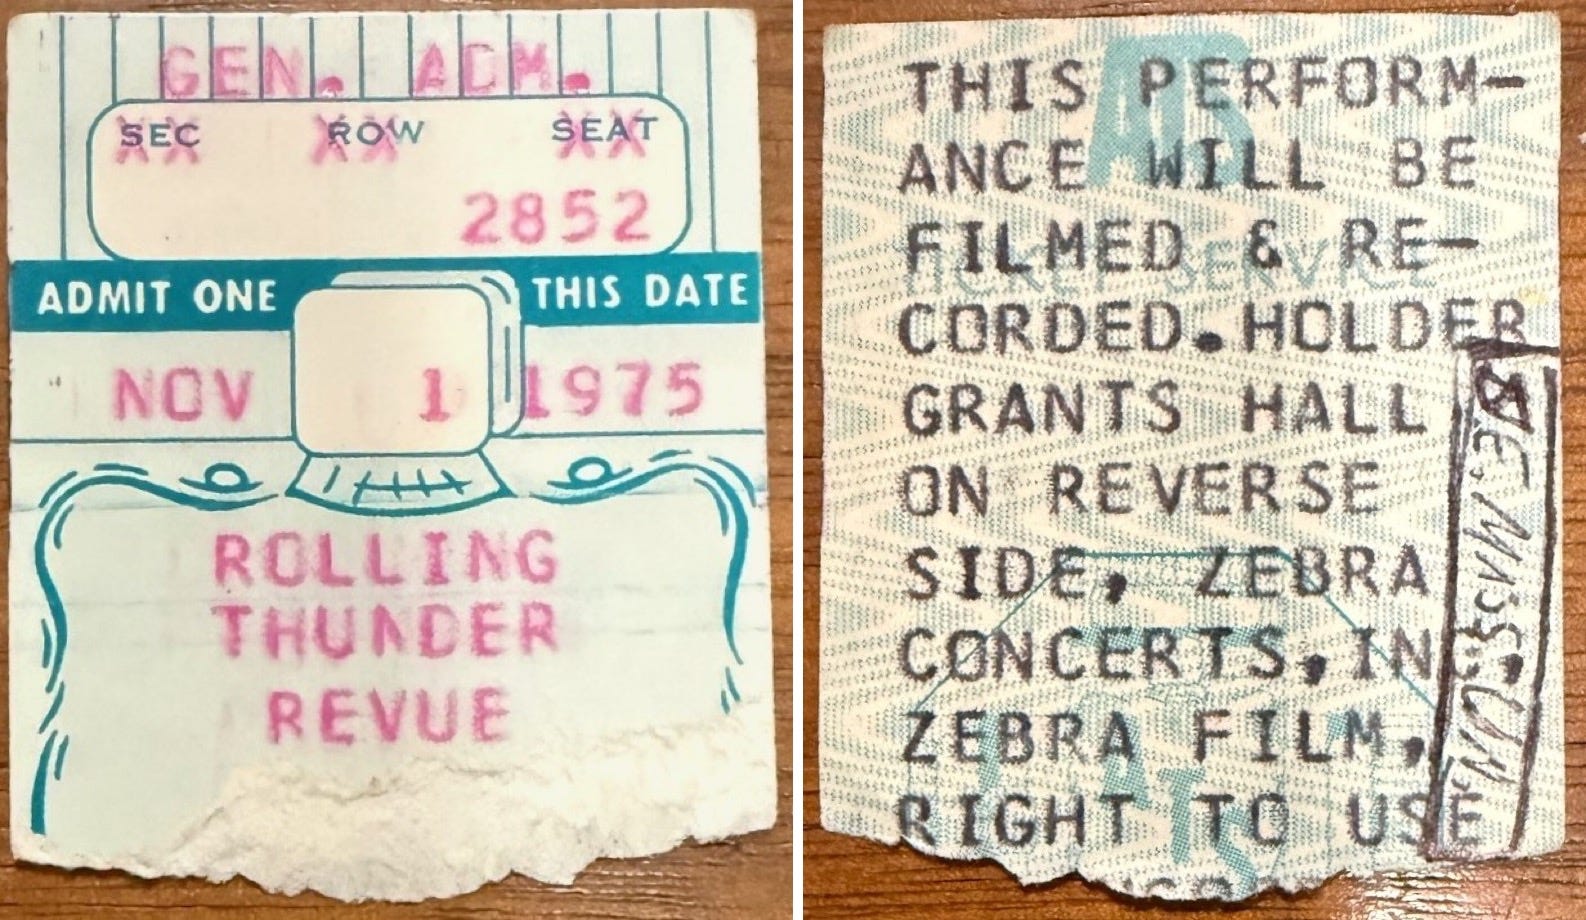 GEN. ADM.
SEC ROW SEAT
XX XX XX
2852
ADMIT ONE THIS DATE
NOV 1 1975
ROLLING
THUNDER
REVUE
ATS
TICKET SERVICE
THIS PERFORM-
ANCE WILL BE
FILMED & RE-
CORDED.HOLDER
GRANTS HALL
ON REVERSE
SIDE, ZEBRA
CONCERTS,IN
ZEBRA FILM,
RIGHT TO USE
ATS